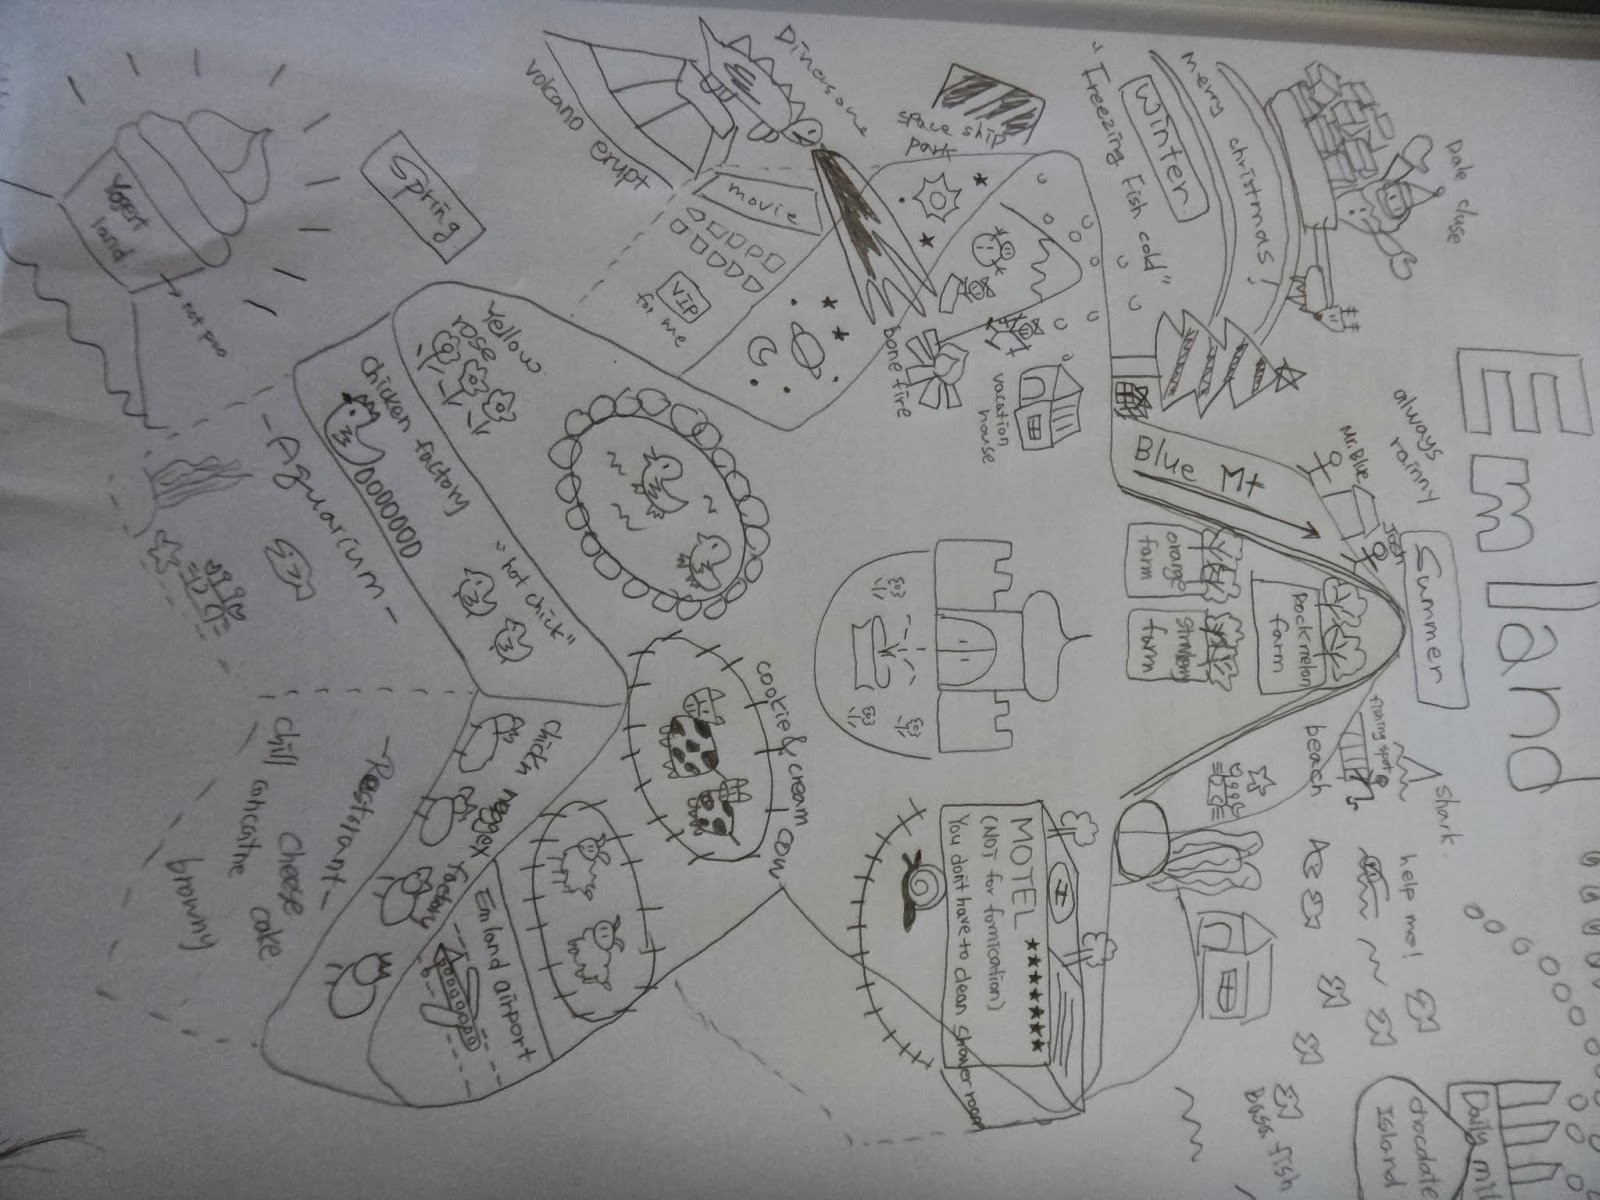 Emland
always
rainny
Summer
Date close
merry christmas!
Winter
"Freezing Fish cold"
space ship
park
Dinosone
volcano erupt
movie
VIP
for me
bone fire
vacation
house
Blue Mt
Mr.Blue
Josh
orange
farm
Strawberry
farm
Rockmelon
farm
fishing spot
beach
shark
help me!
Base fish
chocolate
Island
Daily mi
MOTEL ★★★★★★★
(NOT for fornication)
You don't have to clean shower room
cookie & cream cow
Spring
Yogert
land
not poo
Yellow
rose
chicken factory
"hot chick"
- Aquarium -
chick neggex factory
Emland airport
- Resterant -
cheese cake
chill concarne
browny